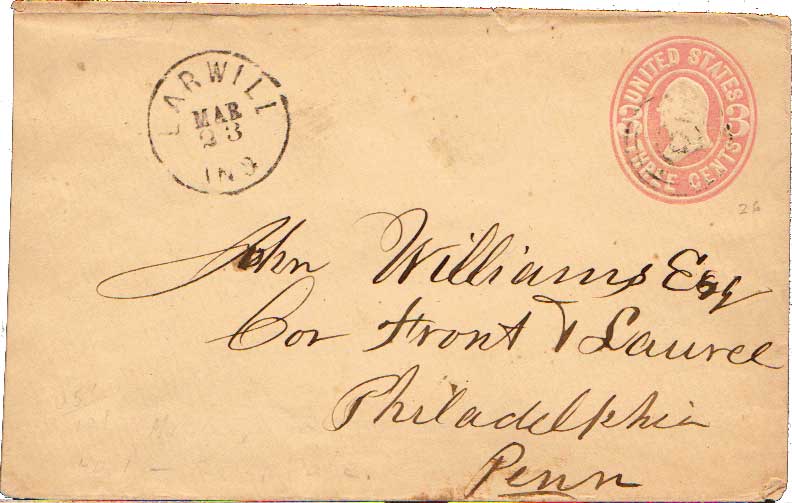 LARWILL
MAR
23
IND
UNITED STATES
THREE CENTS
26
John Williams Esq
Cor Front & Laurel
Philadelphia
Penn